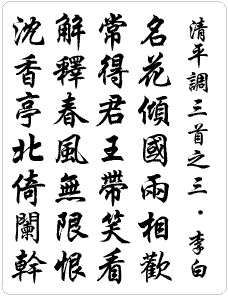 清平調三首之三·李白
名花傾國兩相歡
常得君王帶笑看
解釋春風無限恨
沈香亭北倚闌幹